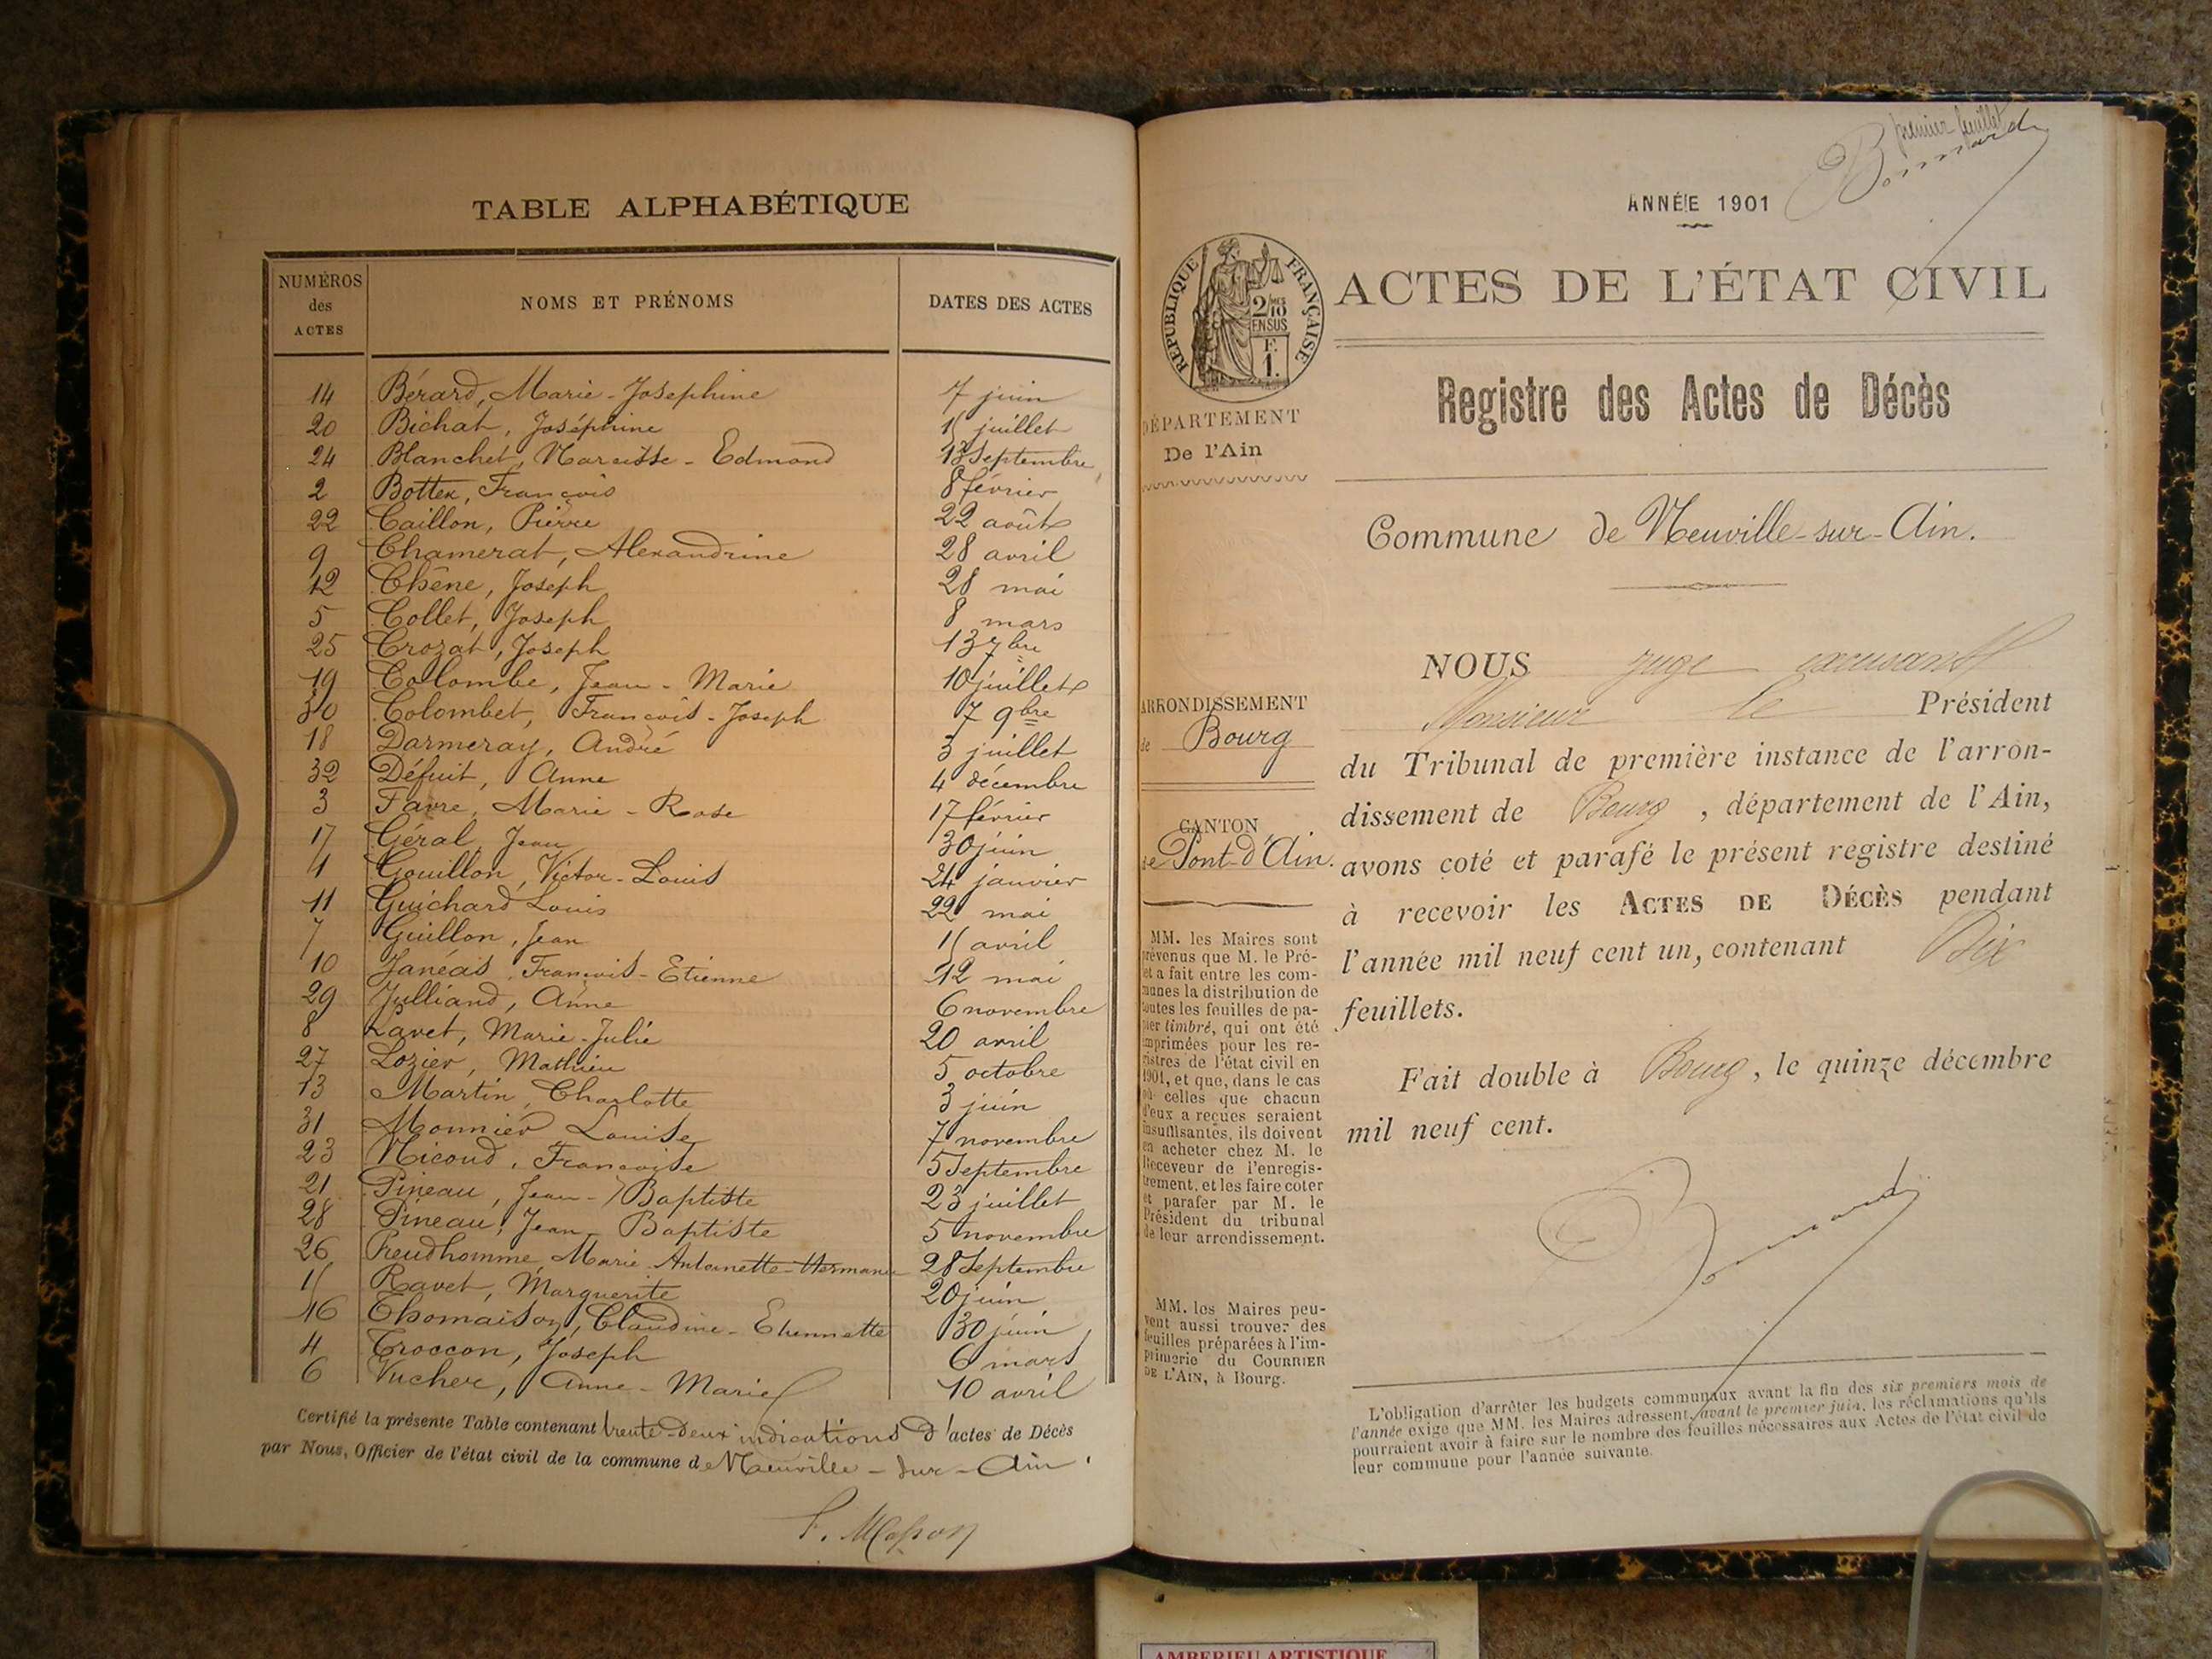 TABLE ALPHABÉTIQUE
NUMÉROS des ACTES NOMS ET PRÉNOMS DATES DES ACTES
14 Bérard, Marie-Josephine 7 juin
20 Bichat, Joséphine 15 juillet
24 Blanchet, Narcisse-Edmond 13 Septembre
2 Bottex, François 8 février
22 Caillon, Pierre 22 août
9 Chamerat, Alexandrine 28 avril
12 Chêne, Joseph 28 mai
5 Collet, Joseph 8 mars
25 Crozat, Joseph 13 7bre
19 Colombe, Jean-Marie 10 juillet
30 Colombet, François-Joseph 7 9bre
18 Darmeray, André 3 juillet
32 Défuit, Anne 4 décembre
3 Favre, Marie-Rose 17 février
17 Géral, Jean 30 juin
1 Gouillon, Victor-Louis 24 janvier
11 Guichard Louis 22 mai
7 Guillon, Jean 15 avril
10 Janéas, François-Etienne 12 mai
29 Julliand, Anne 6 novembre
8 Lavet, Marie-Julie 20 avril
27 Lozier, Mathieu 5 octobre
13 Martin, Charlotte 3 juin
31 Monnier Louise 7 novembre
23 Nicoud, Françoise 5 Septembre
21 Pineau, Jean-Baptiste 23 juillet
28 Pineau, Jean-Baptiste 5 novembre
26 Preudhomme, Marie-Antoinette-Hermance 28 Septembre
15 Ravet, Marguerite 20 juin
16 Thomaison, Claudine-Etiennette 30 juin
4 Troccon, Joseph 6 mars
6 Vucher, Anne-Marie 10 avril
Certifié la présente Table contenant trente-deux indications d'actes de Décès
par Nous, Officier de l'état civil de la commune de Neuville-sur-Ain.
premier feuillet
ANNÉE 1901
RÉPUBLIQUE FRANÇAISE
2/10 EN SUS
F. 1.
ACTES DE L'ÉTAT CIVIL
Registre des Actes de Décès
DÉPARTEMENT
De l'Ain
Commune de Neuville-sur-Ain.
ARRONDISSEMENT
de Bourg
CANTON
de Pont-d'Ain.
MM. les Maires sont
prévenus que M. le Pré-
fet a fait entre les com-
munes la distribution de
toutes les feuilles de pa-
pier timbré, qui ont été
imprimées pour les re-
gistres de l'état civil en
1901, et que, dans le cas
où celles que chacun
d'eux a reçues seraient
insuffisantes, ils doivent
en acheter chez M. le
Receveur de l'enregis-
trement, et les faire coter
et parafer par M. le
Président du tribunal
de leur arrondissement.
MM. les Maires peu-
vent aussi trouver des
feuilles préparées à l'im-
primerie du COURRIER
DE L'AIN, à Bourg.
NOUS juge
Monsieur le Président
du Tribunal de première instance de l'arron-
dissement de Bourg, département de l'Ain,
avons coté et parafé le présent registre destiné
à recevoir les ACTES DE DÉCÈS pendant
l'année mil neuf cent un, contenant Dix
feuillets.
Fait double à Bourg, le quinze décembre
mil neuf cent.
L'obligation d'arrêter les budgets communaux avant la fin des six premiers mois de
l'année exige que MM. les Maires adressent, avant le premier juin, les réclamations qu'ils
pourraient avoir à faire sur le nombre des feuilles nécessaires aux Actes de l'état civil de
leur commune pour l'année suivante.
AMBERIEU ARTISTIQUE